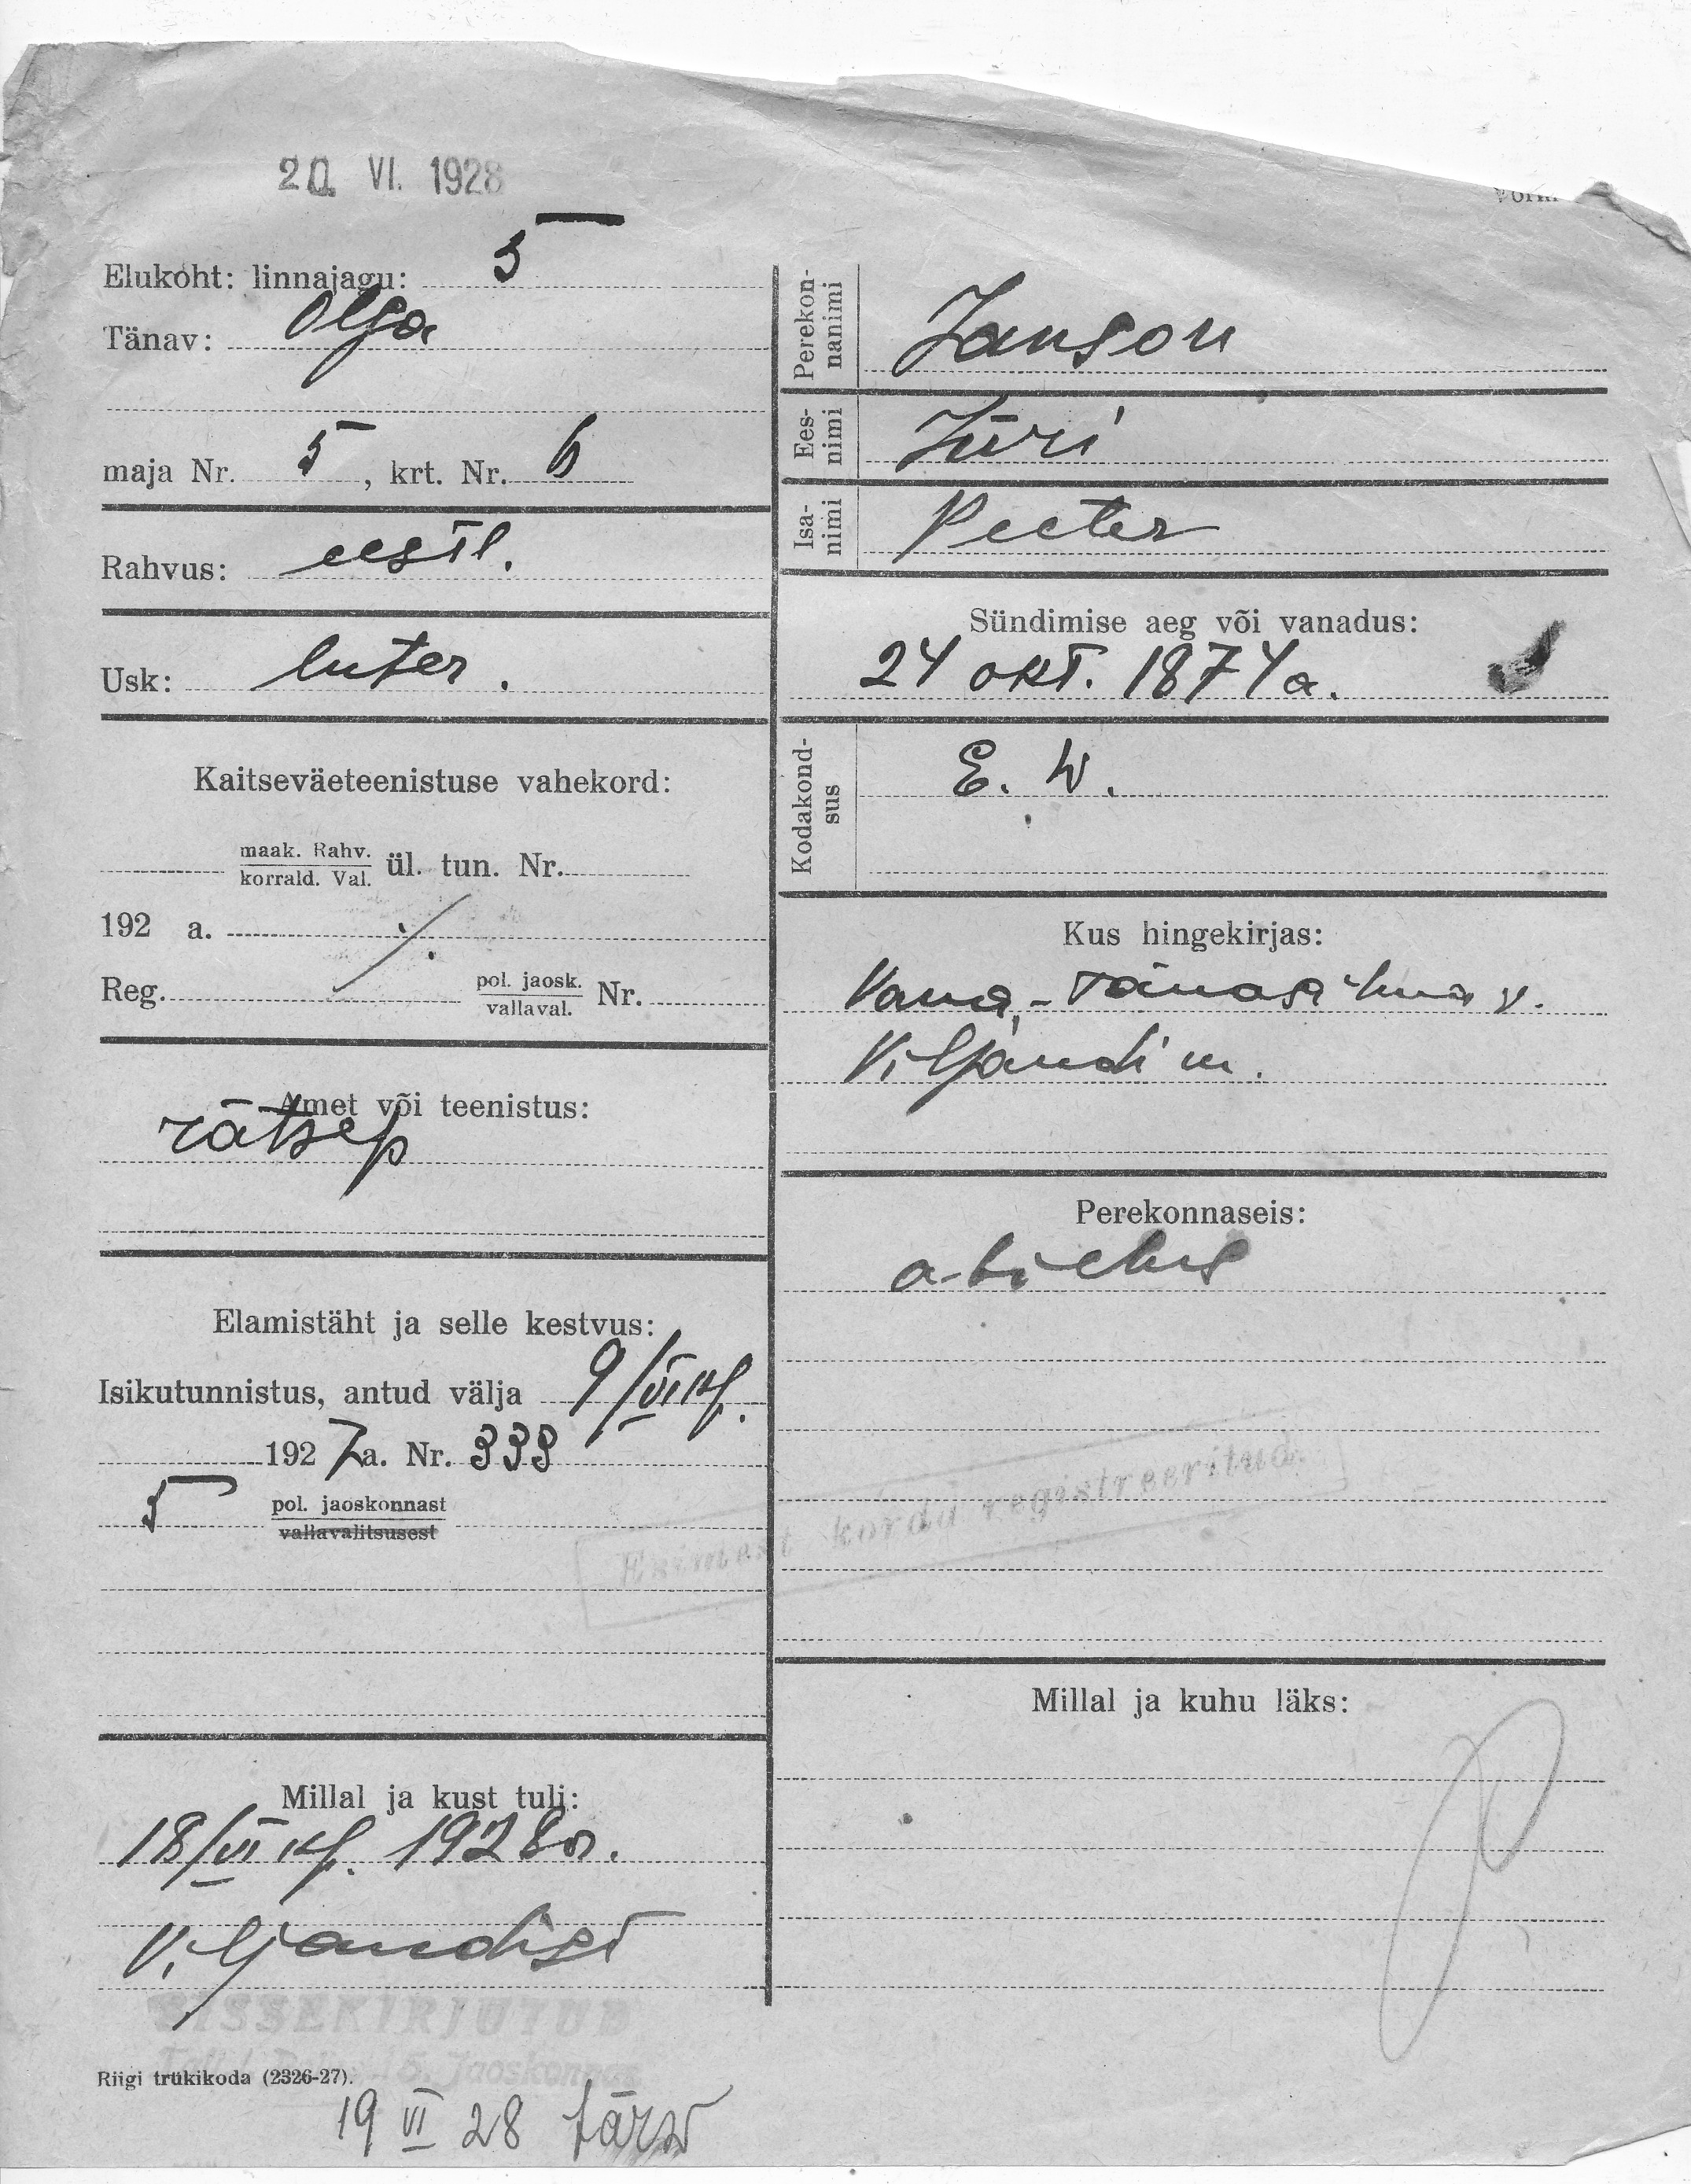 20. VI. 1928
Vorm
Elukoht: linnajagu: 5
Tänav: Olga
maja Nr. 5, krt. Nr. 6
Rahvus: eestl.
Usk: luter.
Kaitseväeteenistuse vahekord:
maak. Rahv.
korrald. Val. ül. tun. Nr.
192 a. ./.
Reg. pol. jaosk.
vallaval. Nr.
Amet või teenistus:
rätsep
Elamistäht ja selle kestvus:
Isikutunnistus, antud välja 9/VI
1927a. Nr. 333
5 pol. jaoskonnast
vallavalitsusest
Millal ja kust tuli:
18/VI 1928a.
Viljandist
SISSEKIRJUTUD
5. Jaoskonnas
Riigi trükikoda (2326-27).
19 VI 28
Perekon-
nanimi Janson
Ees-
nimi Jüri
Isa-
nimi Peeter
Sündimise aeg või vanadus:
24 okt. 1874a.
Kodakond-
sus E. W.
Kus hingekirjas:
Vana-Tänasilma v.
Viljandi m.
Perekonnaseis:
abielus
Esimest korda registreeritud.
Millal ja kuhu läks: